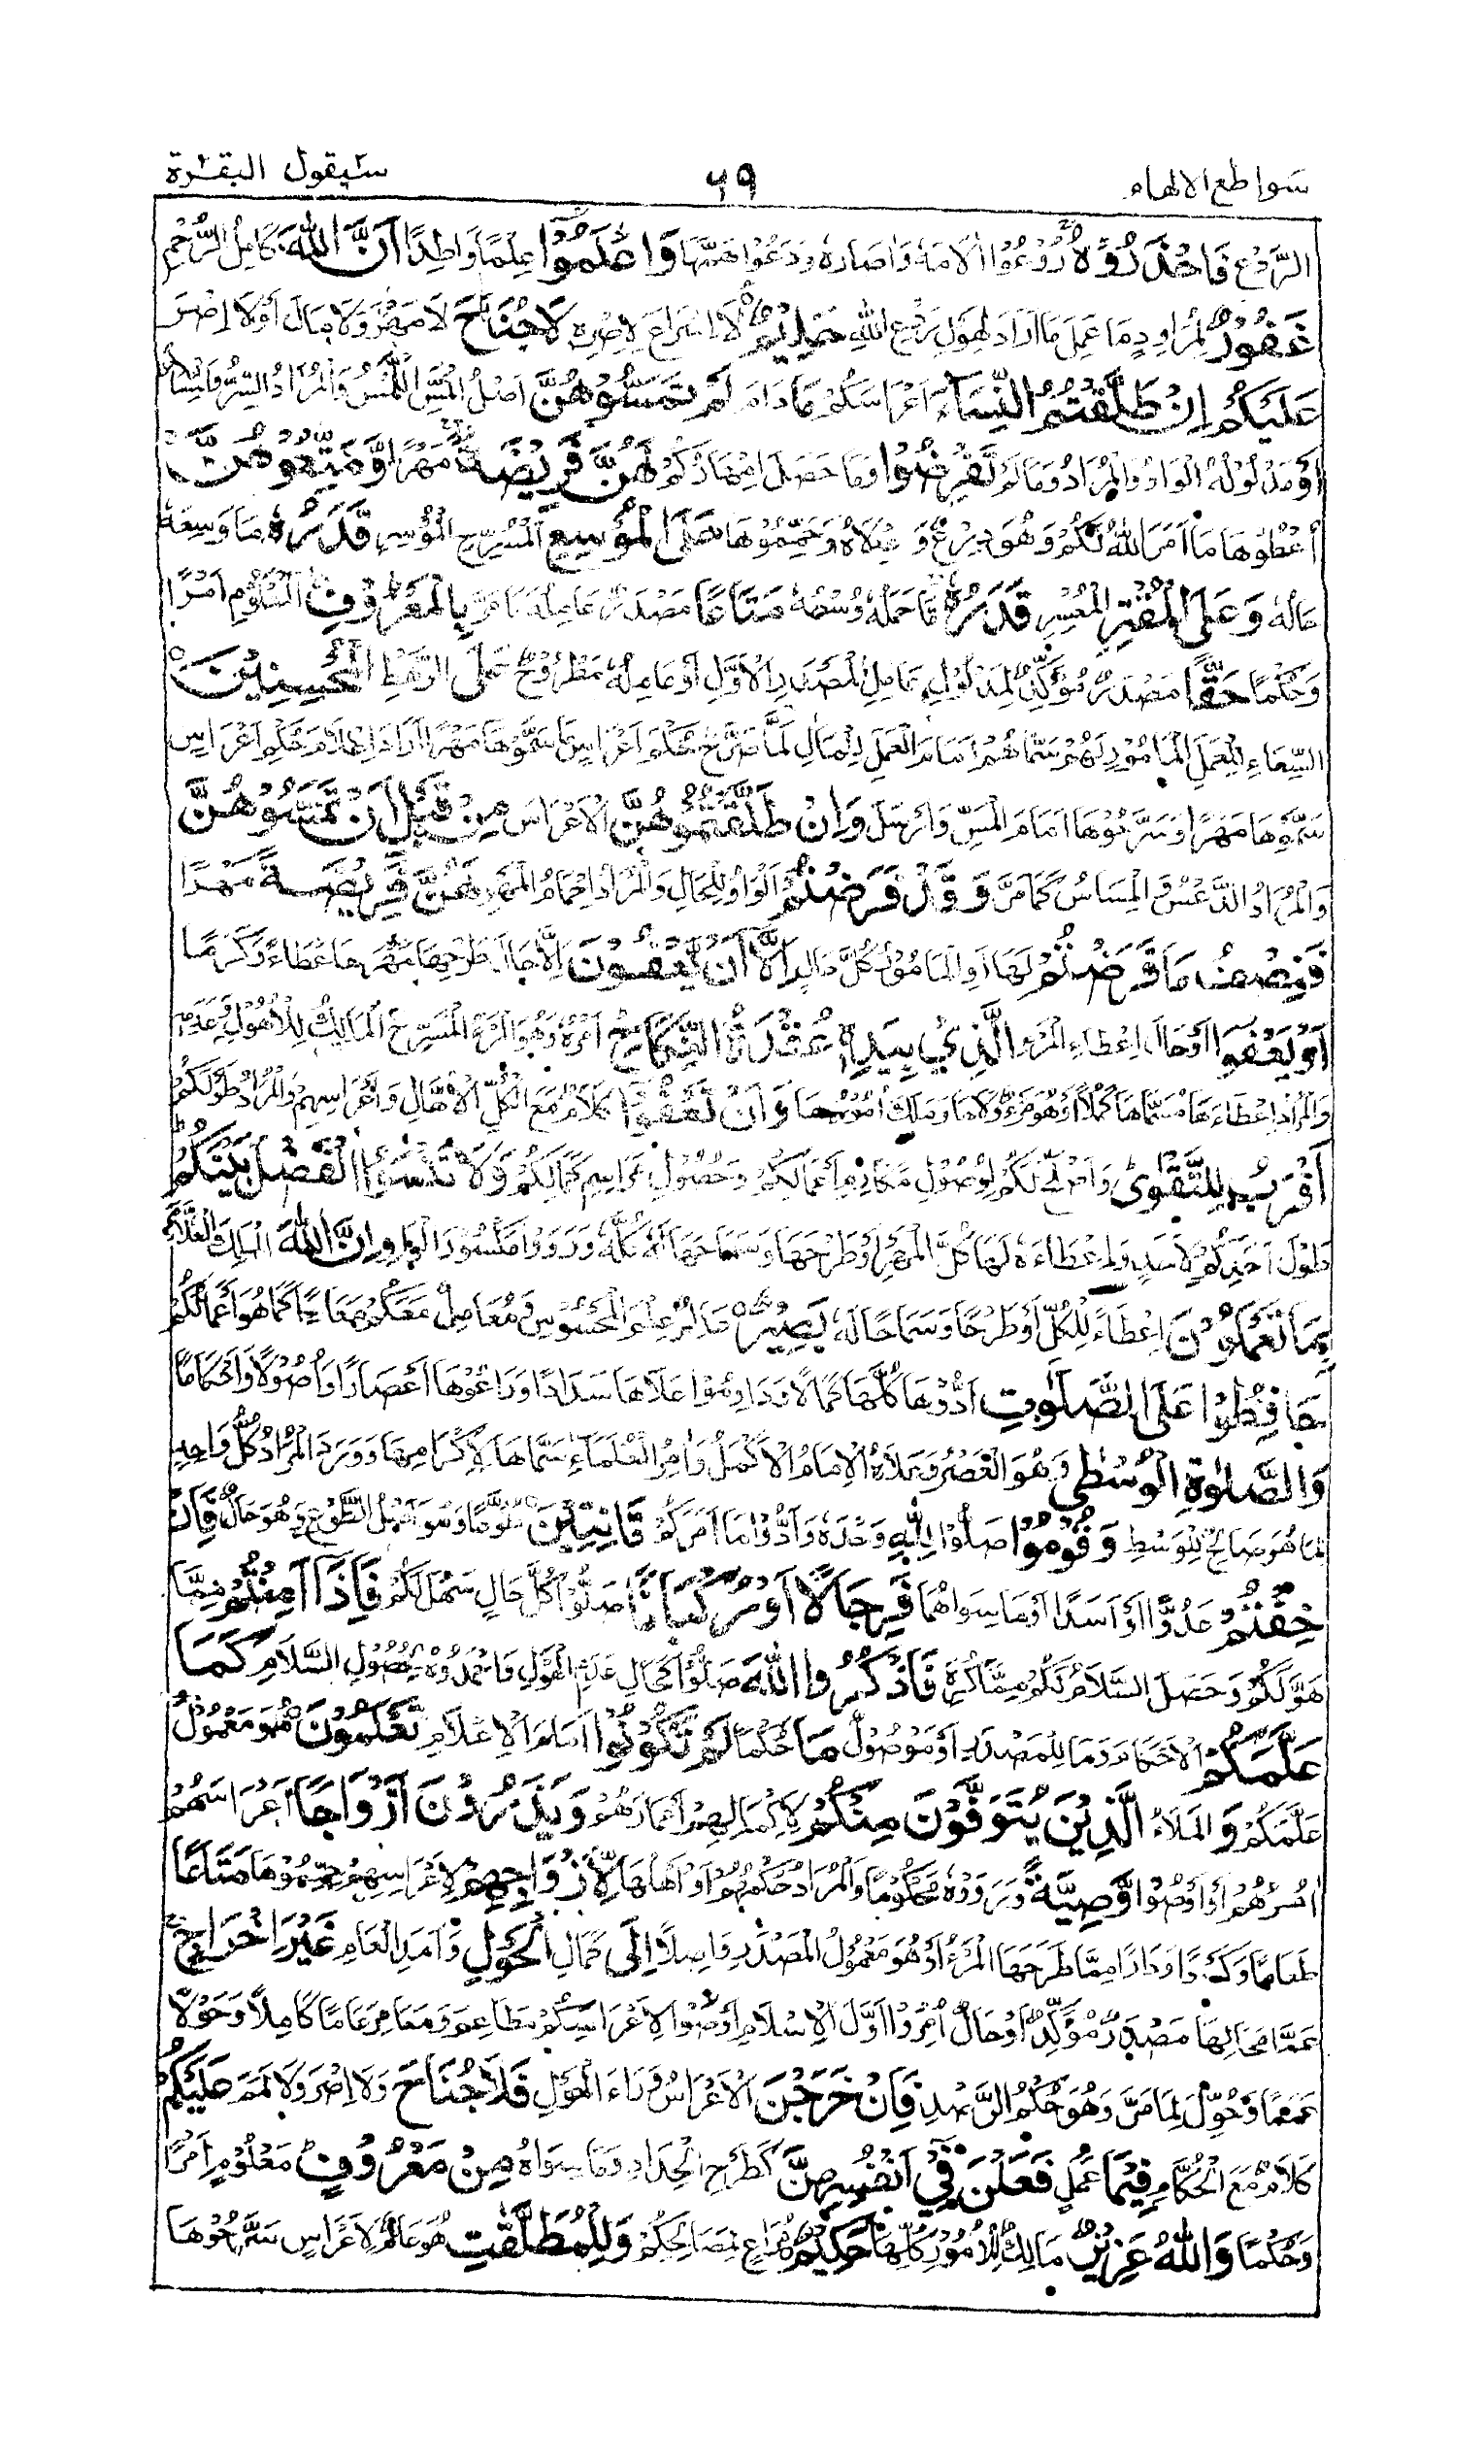 سواطع الالهام ٦٩ سيقول البقرة
الرَّوْعِ فَاحْذَرُوْهُ رُوْعُوْا اٰلَامَهٗ وَاٰصَارَهٗ وَدَعُوْا هَمَّهَا وَاعْلَمُوْٓا عِلْمًا وَاطِدًا اَنَّ اللّٰهَ كَامِلُ الرُّحْمِ
غَفُوْرٌ لِمُرَاوِدٍ مَا عَمِلَ مَا اَرَادَ لِهَوْلِ رَوْعِ اللّٰهِ حَلِيْمٌ لَا اِسْرَاعَ لِاِصْرِهٖ لَاجُنَاحَ لَا مَهْرَ وَلَا مَالَ اَوْ لَا اِصْرَ
عَلَيْكُمْ اِنْ طَلَّقْتُمُ النِّسَاءَ اَعْرَاسَكُمْ مَا دَامَ لَمْ تَمَسُّوْهُنَّ اَصْلُ الْمَسِّ اللَّمْسُ وَالْمُرَادُ السِّرُّ
اَوْ مَدْلُوْلُهُ الْوَاوُ وَالْمُرَادُ وَمَا لَمْ تَفْرِضُوْا وَمَا حَصَلَ اِمْهَارُكُمْ لَهُنَّ فَرِيْضَةً مَهْرًا وَّمَتِّعُوْهُنَّ
اَعْطُوْهَا مَا اَمَرَ اللّٰهُ لَكُمْ وَهُوَ دِرْعٌ وَ وَحَمِّمُوْهَا عَلَى الْمُوْسِعِ الْمُسَرِّحِ الْمُوْسِرِ قَدَرُهٗ مَا وَسِعَهٗ
مَالُهٗ وَعَلَى الْمُقْتِرِ الْمُعْسِرِ قَدَرُهٗ مَا حَمَلَهٗ وُسْعُهٗ مَتَاعًا مَصْدَرٌ عَامِلُهٗ مَا مَرَّ بِالْمَعْرُوْفِ الْمَعْلُوْمِ اَمْرًا
وَحُكْمًا حَقًّا مَصْدَرٌ مُؤَكِّدٌ لِمَدْلُوْلِ عَامِلِ الْمَصْدَرِ الْاَوَّلِ اَوْ عَامِلُهٗ مَطْرُوْحٌ عَلَى الرَّهْطِ الْمُحْسِنِيْنَ
السِّعَاءِ لِلْعَمَلِ الْمَأْمُوْرِ لَهُمْ سَمَّاهُمْ اَمَامَ الْعَمَلِ لِلْمَاٰلِ لَمَّا صَرَّحَ حُكْمَ اَعْرَاسٍ مَا سَمَّوْهَا مَهْرًا اَرَادَ اِعْلَامَ حُكْمِ اَعْرَاسٍ
سَمَّوْهَا مَهْرًا وَسَرَّحُوْهَا اَمَامَ الْمَسِّ وَاَرْسَلَ وَاِنْ طَلَّقْتُمُوْهُنَّ الْاَعْرَاسَ مِنْ قَبْلِ اَنْ تَمَسُّوْهُنَّ
وَالْمُرَادُ الدَّعْسُ وَالْمِسَاسُ كَمَا مَرَّ وَقَدْ فَرَضْتُمْ الْوَاوُ لِلْحَالِ وَالْمُرَادُ اِحْمَامُ الْمَهْرِ لَهُنَّ فَرِيْضَةً مَهْرًا
فَنِصْفُ مَا فَرَضْتُمْ لَهَا اَوِ الْمَأْمُوْرُ كُلَّ حَالٍ اِلَّا اَنْ يَعْفُوْنَ اِلَّا حَالَ طَرْحِهَا مَهْرَهَا عَطَاءً وَكَرَمًا
اَوْ يَعْفُوَا اَوْ حَالَ اِعْطَاءِ الْمَرْءِ الَّذِيْ بِيَدِهٖ عُقْدَةُ النِّكَاحِ اَمْرُهٗ وَهُوَ الْمَرْءُ الْمُسَرِّحُ الْمَالِكُ لِلْاُهُوْلِ وَعَدَمِهٖ
وَالْمُرَادُ اِعْطَاءَهَا مُسَمَّاهَا كُمَّلًا اَوْ هُوَ مَرْءٌ وَلَاهَا وَمَلِكُ اُمُوْرِهَا وَاَنْ تَعْفُوْٓا كَلَامٌ مَعَ الْكُلِّ الْاُهَّالِ وَاَعْرَاسِهِمْ وَالْمُرَادُ طَوْلُكُمْ
اَقْرَبُ لِلتَّقْوٰى وَاَصْلَحُ لَكُمْ لِوُصُوْلِ مَكَارِمِ اَعْمَالِكُمْ وَحُصُوْلِ مَرَاسِمِ كَمَالِكُمْ وَلَا تَنْسَوُا الْفَضْلَ بَيْنَكُمْ
طَوْلَ اَحَدِكُمْ لِاَحَدٍ وَاِعْطَاءَهٗ لَهَا كُلَّ الْمَهْرِ اَوْ طَرْحَهَا وَسَمَاحَهَا لَهٗ كُلَّهٗ وَرَوَوْا مَكْسُوْرَ الْوَاوِ اِنَّ اللّٰهَ الْمَلِكَ الْعَلَّامَ
بِمَا تَعْمَلُوْنَ اِعْطَاءً لِلْكُلِّ اَوْ طَرْحًا وَسَمَاحًا لَهٗ بَصِيْرٌ مُدْرِكٌ عِلْمَ الْمَحْسُوْسِ وَمُعَامِلٌ مَعَكُمْ مَعَادًا كَمَا هُوَ اَعْمَالُكُمْ
حَافِظُوْا عَلَى الصَّلَوٰتِ اَدُّوْهَا كُلَّهَا كَمَالًا وَدَاوِمُوْا عَلَاهَا سَدَادًا وَرَاعُوْهَا اَعْصَارًا وَاُصُوْلًا وَاَحْكَامًا
وَالصَّلٰوةِ الْوُسْطٰى وَهُوَ الْعَصْرُ وَعَلَاهُ الْاِمَامُ الْاَكْمَلُ وَاَمْرُ الْعُلَمَاءِ سَمَّاهَا لِاِكْرَامِهَا وَوَرَدَ الْمُرَادُ كُلُّ وَاحِدٍ
لِمَا هُوَ صَالِحٌ لِلْوَسَطِ وَقُوْمُوْا صَلُّوْا لِلّٰهِ وَحْدَهٗ وَاَدُّوْا مَا اَمَرَكُمْ قَانِتِيْنَ طُوَّعًا وَهُوَ حَالٌ فَاِنْ
خِفْتُمْ عَدُوًّا اَوْ اَسَدًا اَوْ مَا سِوَاهُمَا فَرِجَالًا اَوْ رُكْبَانًا صَلُّوْا كُلَّ حَالٍ سَهُلَ لَكُمْ فَاِذَا اَمِنْتُمْ مِمَّا
هَوَّلَكُمْ وَحَصَلَ السَّلَامُ لَكُمْ مِمَّا كُرِهَ فَاذْكُرُوا اللّٰهَ صَلُّوْا كَحَالِ عَدَمِ الْهَوْلِ وَاحْمَدُوْهُ لِحُصُوْلِ السَّلَامِ كَمَا
عَلَّمَكُمْ الْاَحْكَامَ وَمَا لِلْمَصْدَرِ اَوْ مَوْصُوْلٌ مَا حُكْمًا لَمْ تَكُوْنُوْا اَمَامَ الْاِعْلَامِ تَعْلَمُوْنَ هُوَ مَعْمُوْلُ
عَلَّمَكُمْ وَالْمَلَاءُ الَّذِيْنَ يُتَوَفَّوْنَ مِنْكُمْ لِاِكْمَالِهِمْ اَعْمَارَهُمْ وَيَذَرُوْنَ اَزْوَاجًا اَعْرَاسَهُمْ
اَمْرُهُمْ اَوْ اَوْصَوْا وَّصِيَّةً وَرَوَوْهُ مَحْكُوْمًا وَالْمُرَادُ حُكْمُهُمْ اَوْ اَهْلُهَا لِّاَزْوَاجِهِمْ لِاَعْرَاسِهِمْ حَمِّمُوْهَا مَتَاعًا
طَعَامًا وَكِسَاءً وَدَارًا مِمَّا طَرَحَهَا الْمَرْءُ اَوْ هُوَ مَعْمُوْلُ الْمَصْدَرِ وَاصِلًا اِلَى كَمَالِ الْحَوْلِ وَاَمَدِ الْعَامِ غَيْرَ اِخْرَاجٍ
عَمَّا مَحَالِّهَا مَصْدَرٌ مُؤَكِّدٌ اَوْ حَالٌ اُمِرُوْا اَوَّلَ الْاِسْلَامِ اَوْصُوْا لِاَعْرَاسِكُمْ مَطَاعِمَ وَمَعَامِرَ عَامًا كَامِلًا وَحَوْلًا
عَمَمًا وَحُوِّلَ لِمَا مَرَّ وَهُوَ حُكْمُ الرَّصْدِ فَاِنْ خَرَجْنَ الْاَعْرَاسُ وَرَاءَ الْحَوْلِ فَلَا جُنَاحَ وَلَا اِصْرَ وَلَا لَمَمَ عَلَيْكُمْ
كَلَامٌ مَعَ الْحُكَّامِ فِيْمَا عَمَلٍ فَعَلْنَ فِيْٓ اَنْفُسِهِنَّ كَطَرْحِ الْحِدَادِ وَمَا سِوَاهُ مِنْ مَعْرُوْفٍ مَعْلُوْمٍ اَمْرًا
وَحُكْمًا وَاللّٰهُ عَزِيْزٌ مَالِكٌ لِلْاُمُوْرِ كُلِّهَا حَكِيْمٌ مُرَاعٍ لِمَصَالِحِكُمْ وَلِلْمُطَلَّقٰتِ هُوَ عَامٌّ لِاَعْرَاسٍ سَرَّحُوْهَا